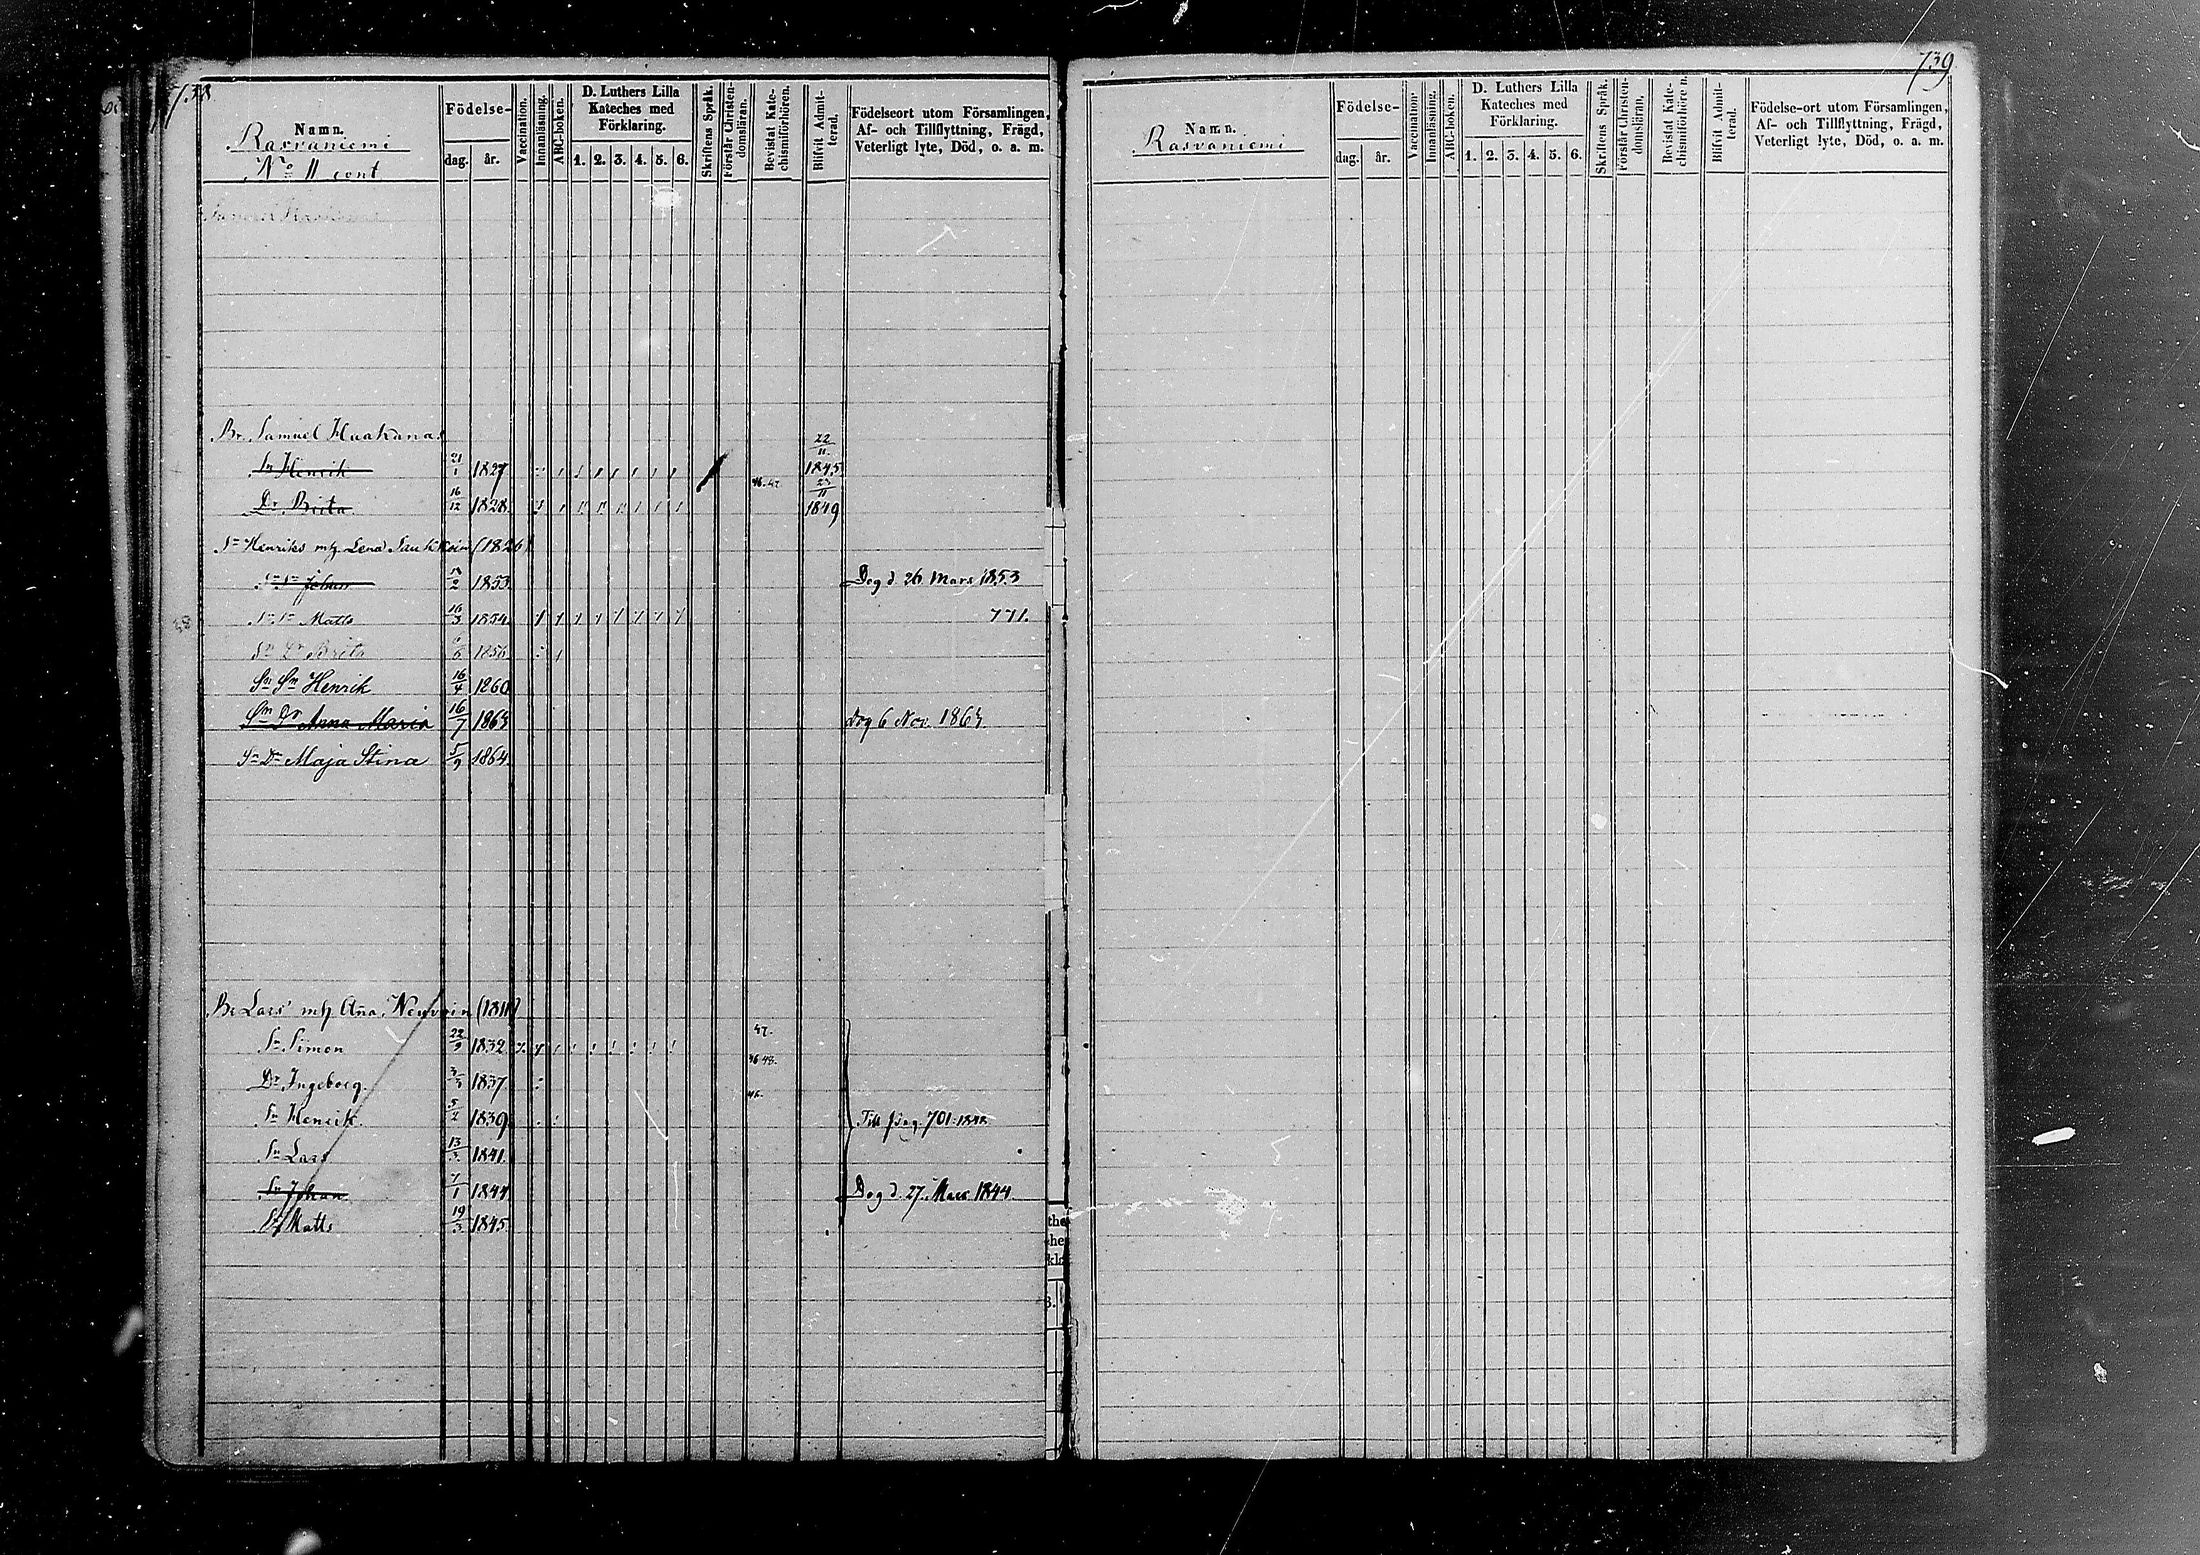 738
Namn.
Rasvaniemi
No 11 cont
Födelse-
dag. år.
Vaccination.
Innanläsning.
ABC-boken.
D. Luthers Lilla
Kateches med
Förklaring.
1. 2. 3. 4. 5. 6.
Skriftens Språk.
Förstår Christen-
domsläran.
Bevistat Kate-
chismiförhören.
Blifvit Admit-
terad.
Födelseort utom Församlingen,
Af- och Tillflyttning, Frägd,
Veterligt lyte, Död, o. a. m.
Br. Samuel
22/11
Sn Henrik 21/1 1827 1845
46.47. 23/11
Dr Brita 16/12 1828 1849
Sn Henriks mh Lena (1826)
Sn Sn Johan 1853 Dog d. 26 Mars 1853
Sn Sn Matts 16/3 1854. 771.
Sn Dr Brita 1856
Sn Sn Henrik 16/4 1860
Sn Dr Anna Maria 16/7 1863 Dog 6 Nov. 1863
Sn Dr Maja Stina 5/9 1864.
Br Lars' mh Aña (1811)
47.
Sn Simon 22/9 1832
46 48.
Dr Ingeborg. 1837
46.
Sn Henrik. 5/2 1839 Till pag. 701. 1848
Sn Lars 13/3 1841
Sn Johan 7/1 1844 Dog d. 27. Mars 1844
Sn Matts 19/3 1845
739
Namn.
Rasvaniemi
Födelse-
dag. år.
Vaccination.
Innanläsning.
ABC-boken.
D. Luthers Lilla
Kateches med
Förklaring.
1. 2. 3. 4. 5. 6.
Skriftens Språk.
Förstår Christen-
domsläran.
Bevistat Kate-
chismiförhören.
Blifvit Admit-
terad.
Födelse-ort utom Församlingen,
Af- och Tillflyttning, Frägd,
Veterligt lyte, Död, o. a. m.